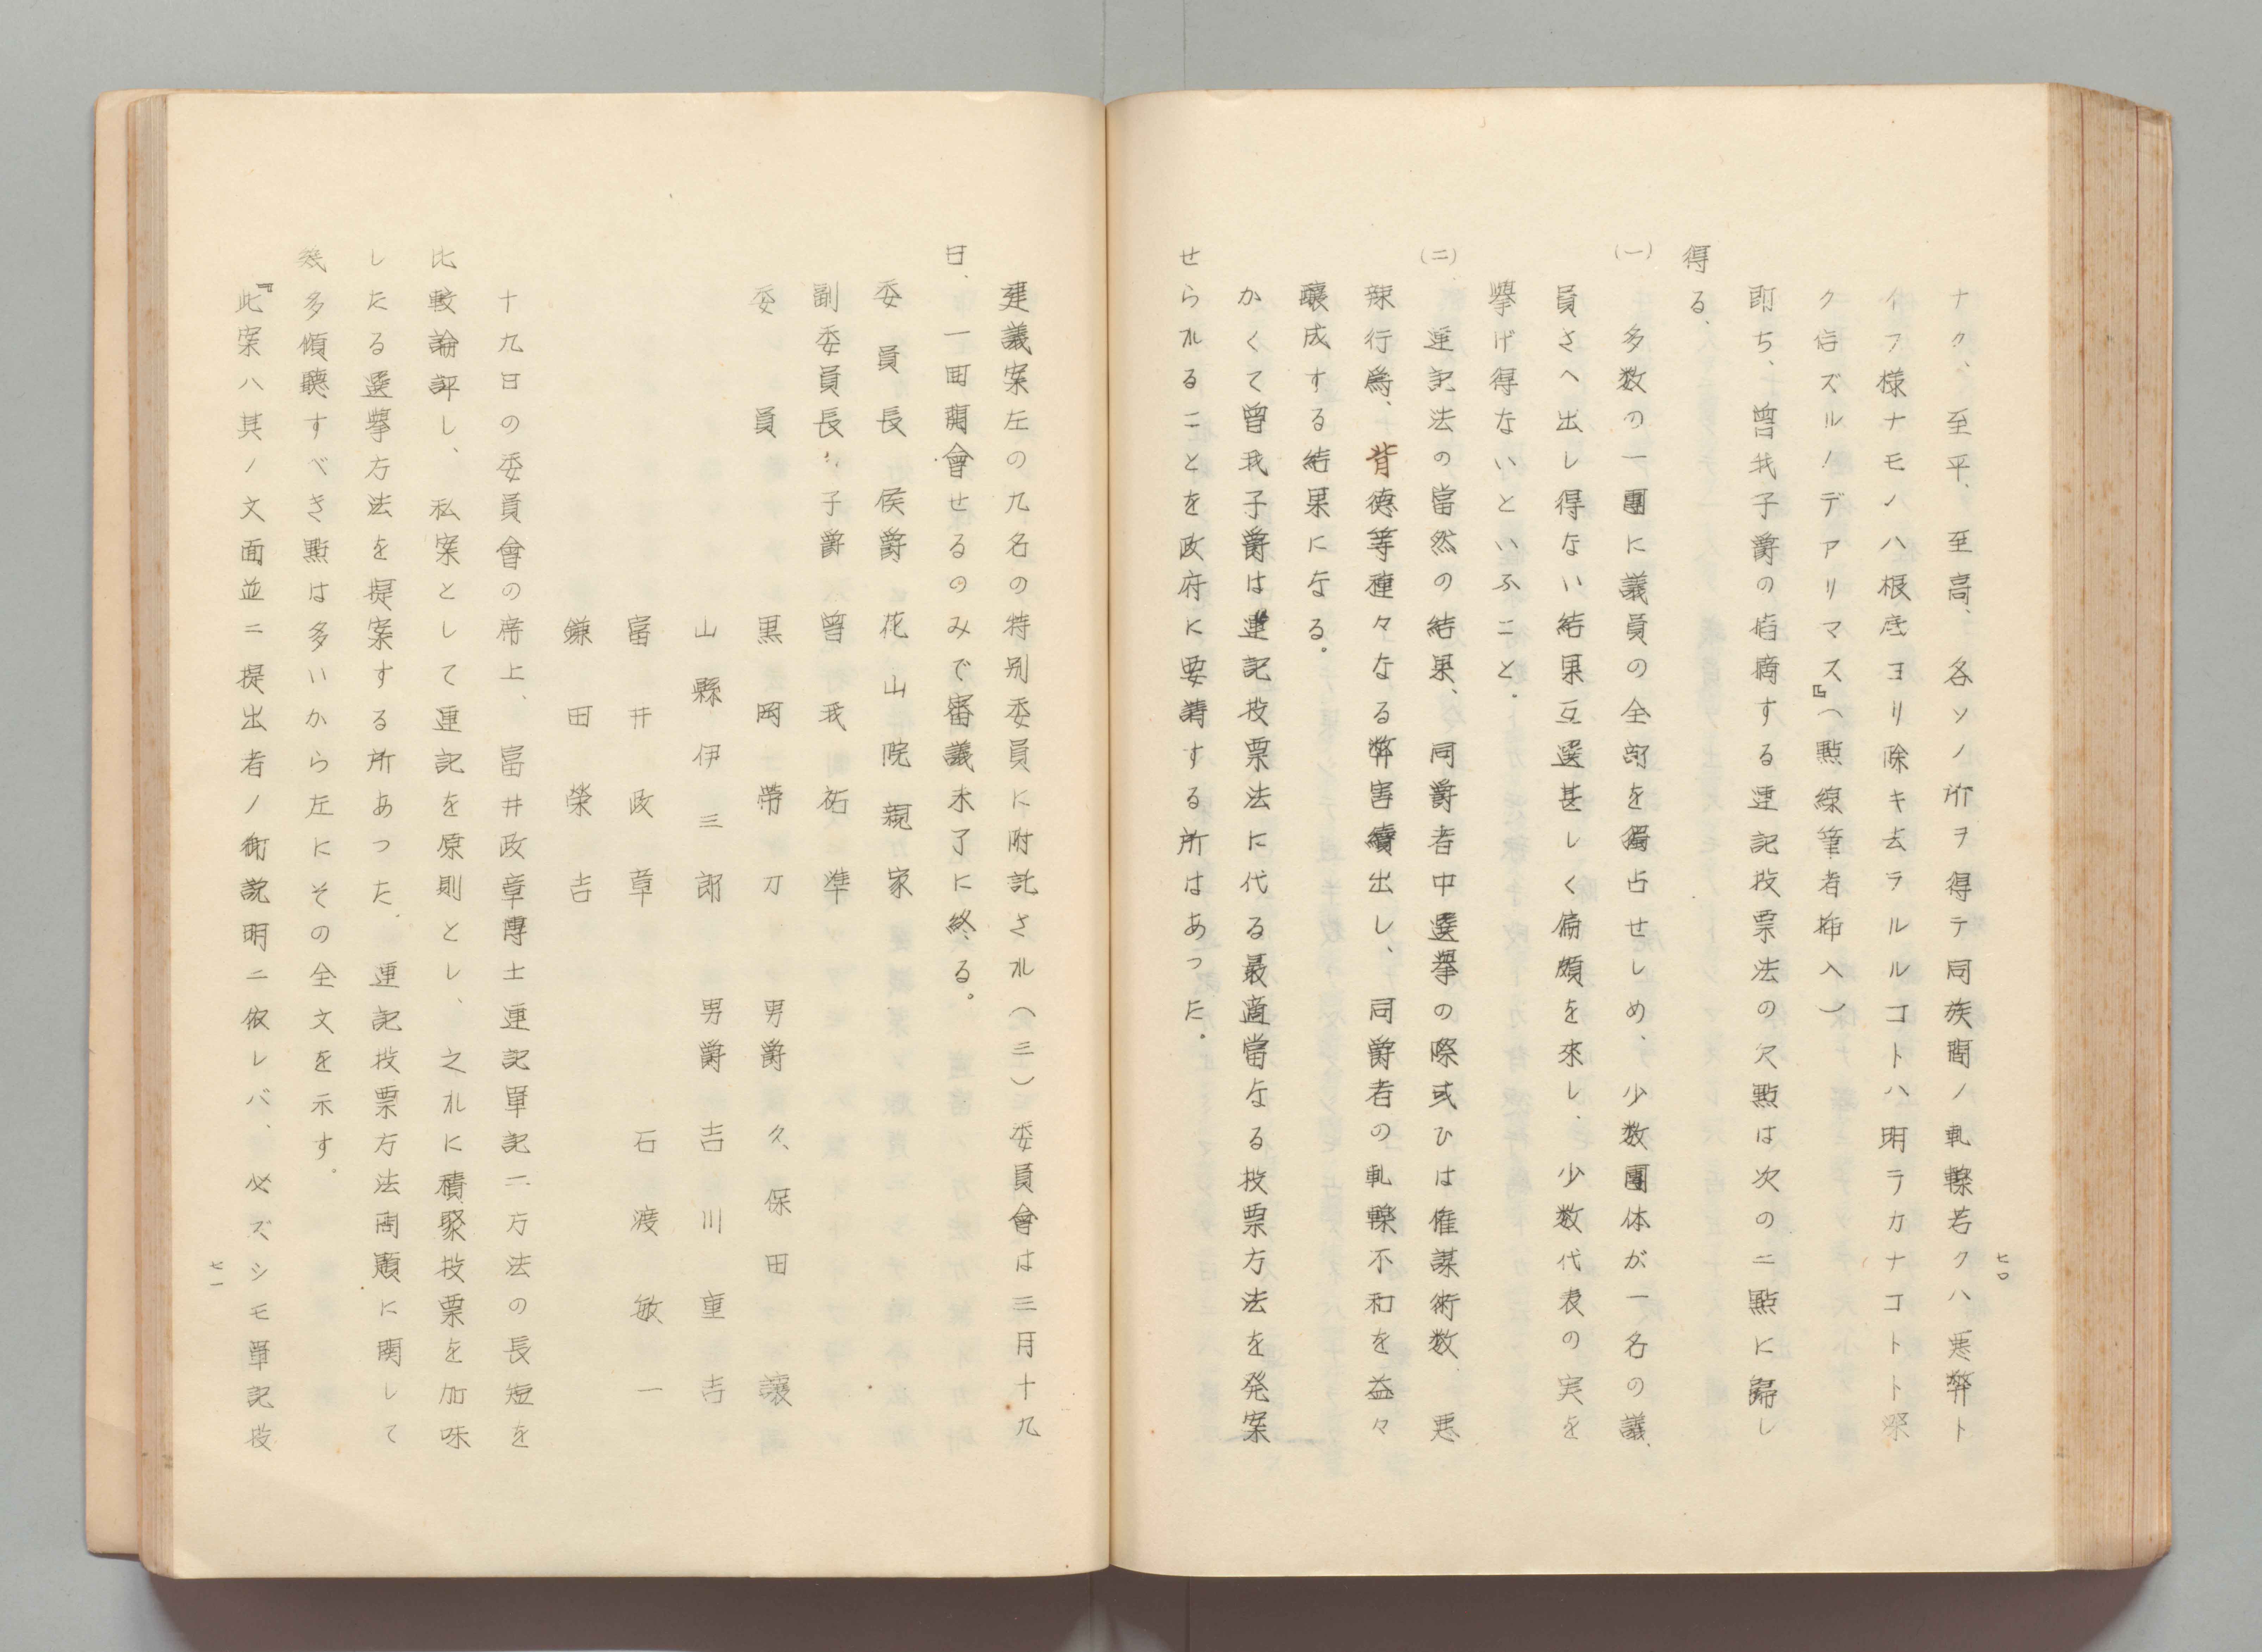 ナク、至平、至高、各ソノ所ヲ得テ同族間ノ軋轢若クハ悪弊ト
イフ様ナモノハ根底ヨリ除キ去ラルルコトハ明ラカナコトト深
ク信ズルノデアリマス』（點線筆者挿入）
即ち、曽我子爵の指摘する連記投票法の欠點は次の二點に歸し
得る、
(一) 多数の一團に議員の全部を獨占せしめ、少数團体が一名の議
員さへ出し得ない結果互選甚しく偏頗を來し、少数代表の実を
擧げ得ないといふこと。
(二) 連記法の當然の結果、同爵者中選擧の際或ひは権謀術数、悪
辣行爲、背德等種々なる弊害續出し、同爵者の軋轢不和を益々
釀成する結果になる。
かくて曽我子爵は連記投票法に代る最適當なる投票方法を発案
せられることを政府に要請する所はあつた。
七〇
建議案左の九名の特別委員に附託され（三）委員會は三月十九
日、一回開會せるのみで審議未了に終る。
委員長 侯爵 花山院親家
副委員長 子爵 曽我祐準
委員 黒岡帶刀 男爵 久保田讓
山縣伊三郎 男爵 吉川重吉
富井政章 石渡敏一
鎌田榮吉
十九日の委員會の席上、富井政章博士連記單記二方法の長短を
比較論評し、私案として連記を原則とし、之れに積聚投票を加味
したる選擧方法を提案する所あつた。連記投票方法問題に関して
幾多傾聽すべき點は多いから左にその全文を示す。
『此案ハ其ノ文面並ニ提出者ノ御説明ニ依レバ、必ズシモ單記投
七一